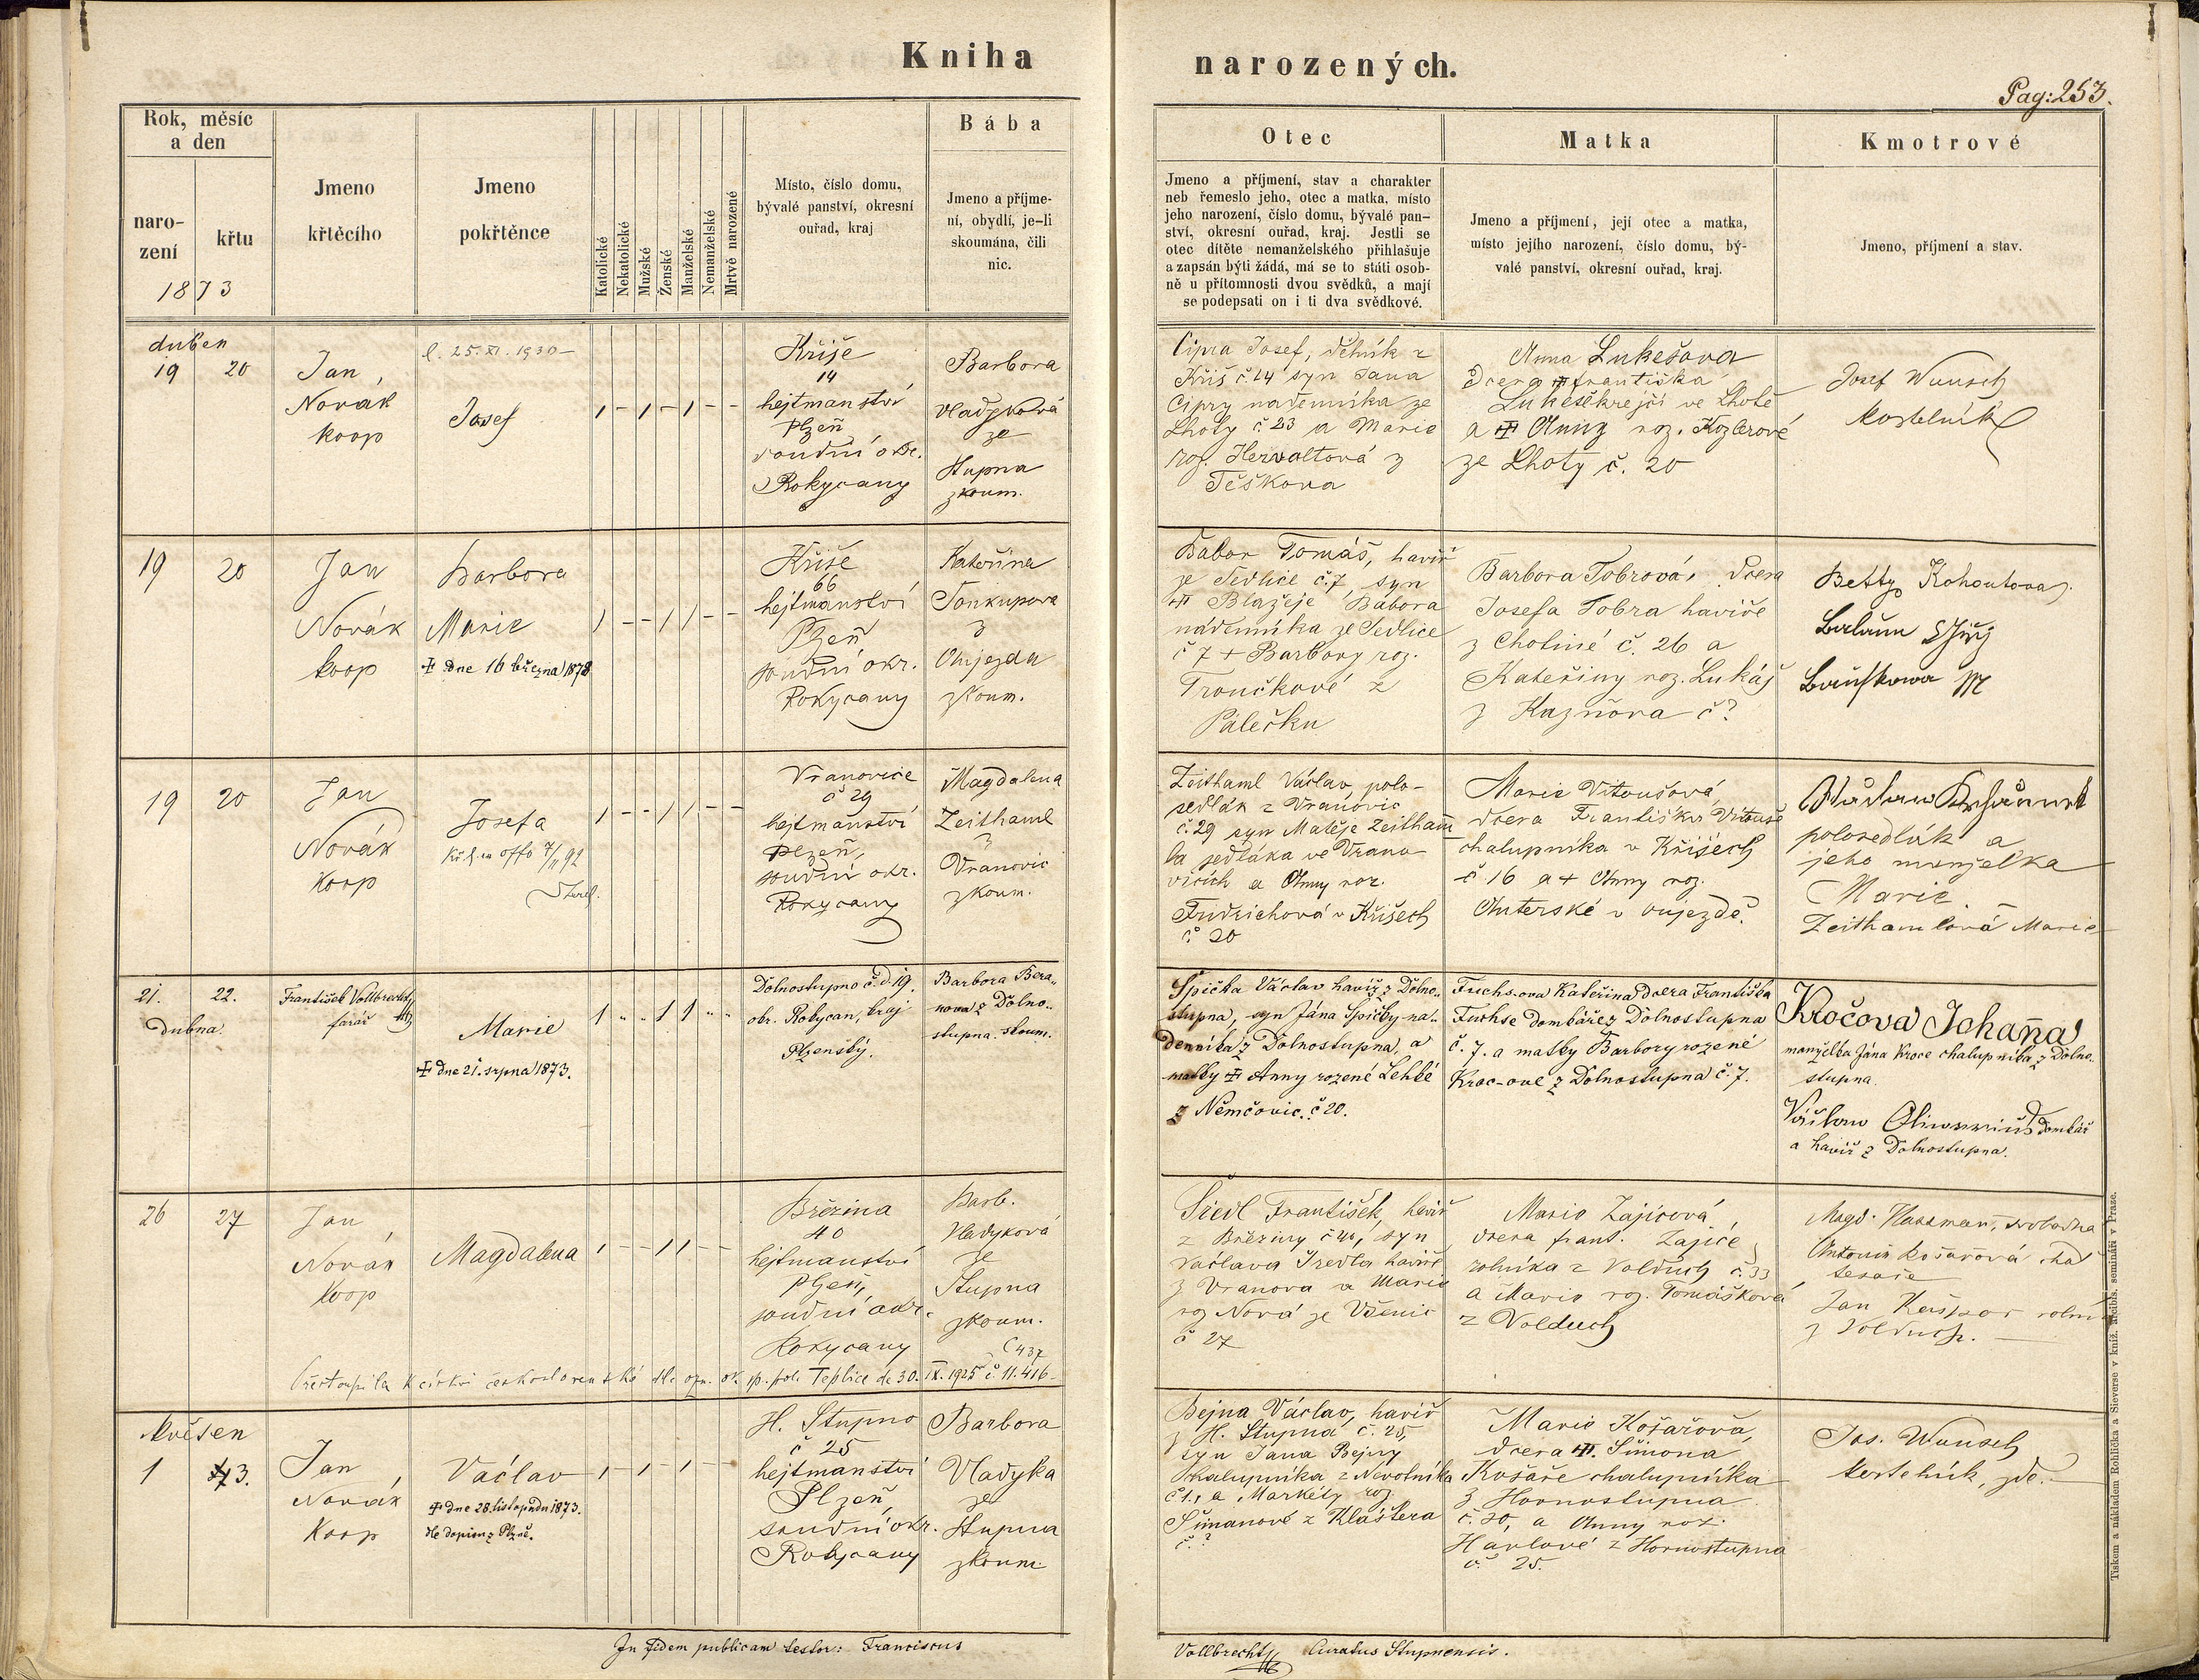 Kniha
narozených.
Pag: 253.
Rok, měsíc
a den
naro-
zení
křtu
1873
Jmeno
křtěcího
Jmeno
pokřtěnce
Katolické
Nekatolické
Mužské
Ženské
Manželské
Nemanželské
Mrtvě narozené
Místo, číslo domu,
bývalé panství, okresní
ouřad, kraj
Bába
Jmeno a příjme-
ní, obydlí, je-li
skoumána, čili
nic.
Otec
Jmeno a příjmení, stav a charakter
neb řemeslo jeho, otec a matka, místo
jeho narození, číslo domu, bývalé pan-
ství, okresní ouřad, kraj. Jestli se
otec dítěte nemanželského přihlašuje
a zapsán býti žádá, má se to státi osob-
ně u přítomnosti dvou svědků, a mají
se podepsati on i ti dva svědkové.
Matka
Jmeno a příjmení, její otec a matka,
místo jejího narození, číslo domu, bý-
valé panství, okresní ouřad, kraj.
Kmotrové
Jmeno, příjmení a stav.
duben
19 20
Jan,
Novák
koop
l. 25. XI. 1930 -
Josef
1 - 1 - 1 - -
Kříše
14
hejtmanství
Plzeň
soudní okr.
Rokycany
Barbora
Vladyková
ze
Stupna
zkoum.
Cipra Josef, dělník z
Kříš č. 14 syn Jana
Cipry nádenníka ze
Lhoty č 23 a Marie
roz. Hervaltová z
Těškova
Anna Lukešova
dcera † františka
Lukeše krejčí ve Lhotě
a † Anny roz. Kozlerové
ze Lhoty č. 20
Josef Wunsch
kostelník
19 20
Jan
Novák
koop
Barbora
Marie
† dne 16 března 1878
1 - - 1 1 - -
Kříše
66
hejtmanství
Plzeň
soudní okr.
Rokycany
Kateřina
z
Oujezda
zkoum.
Babor Tomáš, havíř
ze Sedlice č. 7, syn
† Blažeje Babora
nádenníka ze Sedlice
č 7 + Barbory roz.
Troučkové z
Pálečku
Barbora Tobrová, dcera
Josefa Tobra havíře
z Chotiné č. 26 a
Kateřiny roz. Lukáš
z Kaznova č?
Betty Kohoutova
19 20
Jan
Novák
koop
Josefa
1 - - 1 1 - -
Vranovice
č 29
hejtmanství
Plzeň,
soudní okr.
Rokycany
Magdalena
Zeithaml
z
Vranovic
zkoum.
Zeithaml Václav, polo-
sedlák z Vranovic
č. 29 syn Matěje Zeitham
la sedláka ve Vrano
vicích a Anny roz.
Fridrichová v Kříšech
č 20
Marie Vitoušová,
dcera Františka Vitouše
chalupníka v Kříšech
č. 16 a + Anny roz.
Outerské v oujezdě.
polosedlák a
jeho manželka
Marie
Zeithamlová Marie
21. 22.
Dubna.
František Vollbrecht
farář
Marie
† dne 21. srpna 1873.
1 " " 1 1 " "
Dolnostupno č. d. 19.
okr. Rokycan, kraj
Plzenský.
Barbora Bera-
nova z Dolno-
stupna. skoum.
Špička Václav havíř z Dolno-
stupna, syn Jána Špičky ná-
denníka z Dolnostupna, a
matky † Anny rozené Lehké
z Němčovic. č 20.
Fuchs-ova Kateřina dcera Františka
Fuchse domkáře z Dolnostupna
č. 7. a matky Barbory rozené
Kroc-ové z Dolnostupna č. 7.
Kročova Johana
manželka Jána Kroce chalupníka z Dolno-
stupna.
domkář
a havíř z Dolnostupna.
26 27
Jan
Novák
koop
Magdalena
1 - - 1 1 - -
Březina
40
hejtmanství
Plzeň,
soudní okr.
Rokycany
Barb.
Vladyková
ze
Stupna
zkoum.
Přestoupila k církvi československé dle ozn. ok. sp. pol. Teplice de 30. IX. 1925 č 11.416 -
Siedl František, havíř
z Březiny č 40, syn
Václava Siedla havíře
z Vranova a Marie
roz Nová ze Všenic
č 27
Marie Zajícová,
dcera frant. Zajíce
rolníka z Volduch č. 33
a Marie roz. Tomášková
z Volduch
Jan Kašpar rolní
z Volduch.
květen
1 3.
Jan,
Novák
Koop
Václav
† dne 28. listopadu 1873.
1 - 1 - 1 - -
H. Stupno
č 25
hejtmanství
Plzeň,
soudní okr.
Rokycany
Barbora
Vladyka
ze
Stupna
zkoum.
Bejna Václav, havíř
z H. Stupna č. 25,
syn Jana Bejny
chalupníka z Nevolníka
č 1., a Markéty roz.
Šimanové z Kláštera
č. ?
Marie Košařová,
dcera † Šimona
Košaře chalupníka
z Hornostupna
č. 20, a Anny roz.
Havlové z Hornostupna
č. 25.
Jos. Wunsch
kostelník, zde.
In fidem publicam testor: Franciscus
Vollbrecht Curatus Stupnensis.
Tiskem a nákladem Rohlíčka a Sieverse v kníž. arcibis. semináři v Praze.